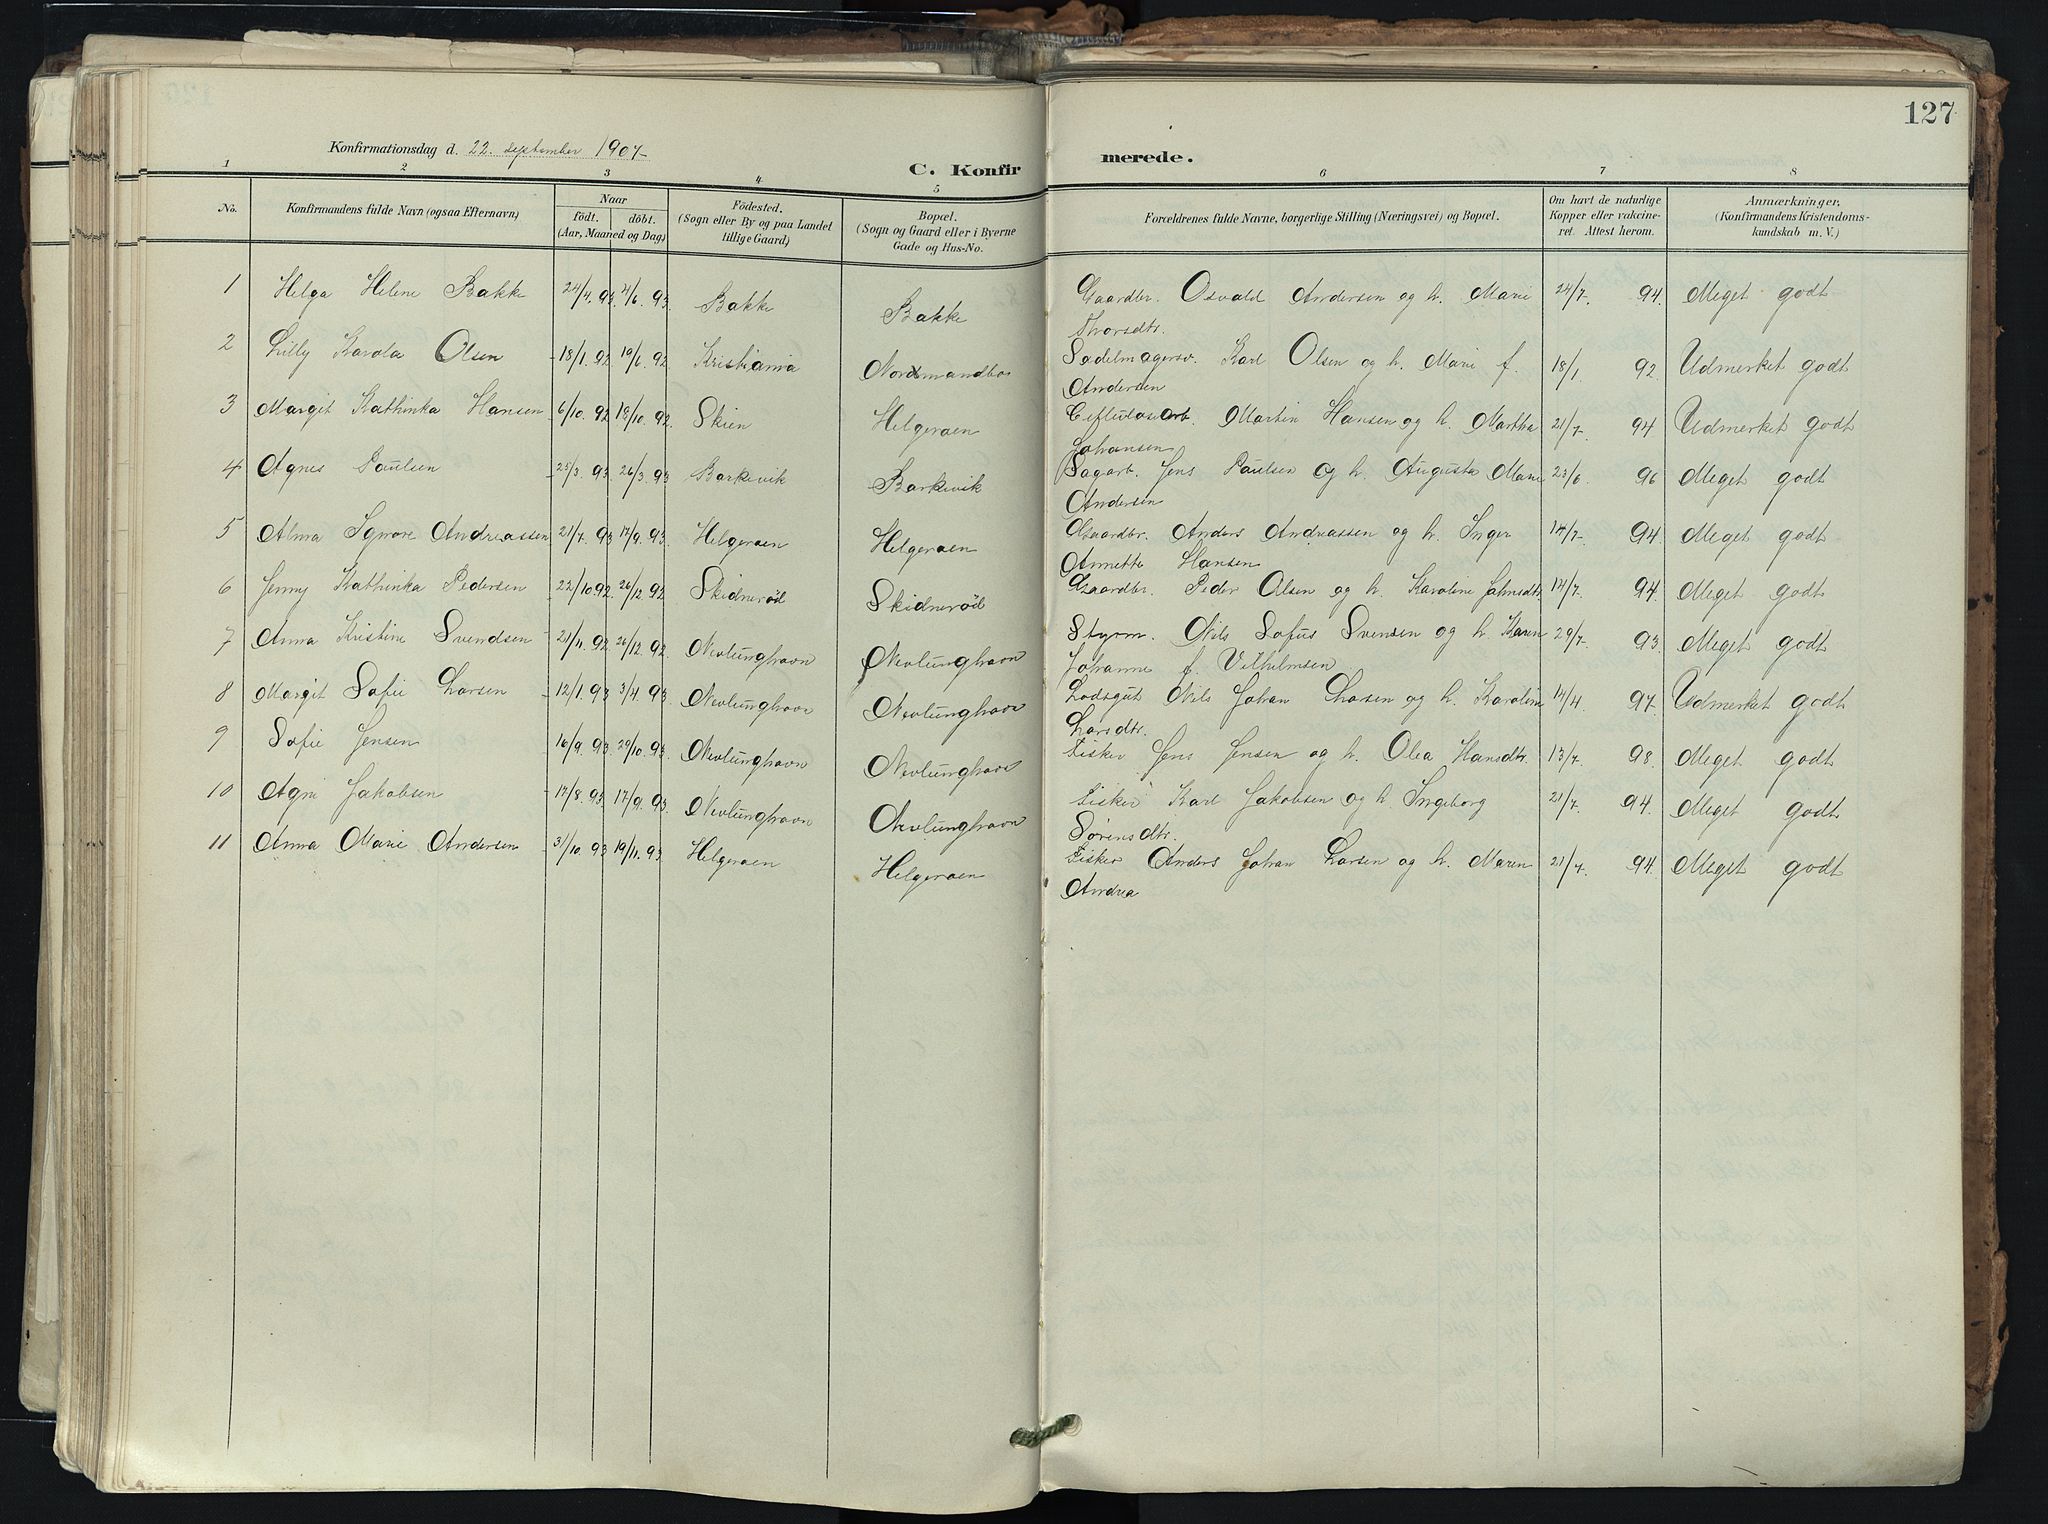 127
Konfirmationsdag d. 22. september 1907
C. Konfirmerede.
1 2 3 4 5 6 7 8
No.
Konfirmandens fulde Navn (ogsaa Efternavn)
Naar
födt. döbt.
(Aar, Maaned og Dag)
Födested.
(Sogn eller By og paa Landet
tillige Gaard)
Bopæl.
(Sogn og Gaard eller i Byerne
Gade og Hus-No.
Forældrenes fulde Navne, borgerlige Stilling (Næringsvei) og Bopæl.
Om havt de naturlige
Kopper eller vakcine-
ret. Attest herom.
Anmærkninger,
(Konfirmandens Kristendoms-
kundskab m. V.)
1 Helga Helene Bakke 24/4. 93 4/6. 93 Bakke Bakke Gaardbr. Osvald Andersen og h. Marie 24/7. 94. Meget godt
Thorsdtr.
2 Lilly Karola Olsen 18/1. 92 19/6. 92 Kristiania Nordmandbo Sadelmagersv. Karl Olsen og h. Marie f. 18/1 92. Udmerket godt
Andersen
3 Margit Kathinka Hansen 6/10. 92 18/10. 92 Skien Helgeraen Martin Hansen og h. Martha 21/7. 94 Udmerket godt
Johansen
4 Agnes Paulsen 25/3. 93 26/3. 93 Barkevik Barkevik Sagarb. Jens Paulsen og h. Augusta Marie 23/6. 96 Meget godt
Andersen
5 Alma Signore Andreassen 21/7. 93 17/9. 93. Helgeraen Helgeraen Gaardbr. Anders Andreassen og h. Inger 14/7. 94. Meget godt
Annette Hansen
6 Jenny Kathinka Pedersen 22/10. 92. 26/12. 92 Skidneröd Skidneröd Gaardbr. Peder Olsen og h. Karoline Johnsdtr. 14/7. 94. Meget godt
7 Anna Kristine Svendsen 21/11. 92 26/12. 92 Nevlunghavn Nevlunghavn Styrm. Nils Sofus Svensen og h. Karen 29/7. 93. Meget godt
Johanne f. Vilhelmsen
8 Margit Sofie Larsen 12/1. 93 3/4. 93 Nevlunghavn Nevlunghavn Lodsgut Nils Johan Larsen og h. Karoline 14/4 97. Udmerket godt
Larsdtr.
9 Sofie Jensen 16/9. 93. 29/10. 93 Nevlunghavn Nevlunghavn Fisker Jens Jensen og h. Olea Hansdtr. 13/7. 98. Meget godt
10 Agni Jakobsen 17/8. 93 17/9. 93 Nevlunghavn Nevlunghavn Fisker Karl Jakobsen og h. Ingeborg 21/7. 94. Meget godt
Sørensdtr.
11 Anna Marie Andersen 31/10. 93 19/11. 93 Helgeraen Helgeraen Fisker Anders Johan Larsen og h. Maren 21/7. 94. Meget godt
Andrea